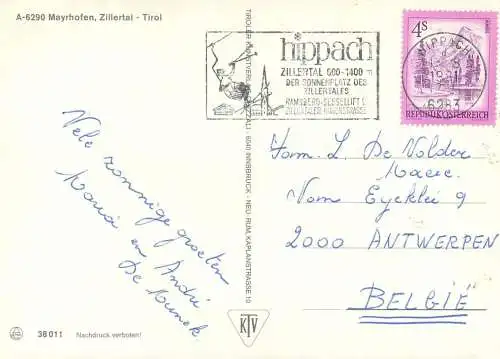 A-6290 Mayrhofen, Zillertal - Tirol
hippach
ZILLERTAL 600-1400 m
DER SONNENPLATZ DES
ZILLERTALES
RAMSBERG-SESSELLIFT U.
ZILLERTALER HÖHENSTRASSE
4S
HIPPACH
6283
REPUBLIK ÖSTERREICH
Vele zonnige groeten
Maria en André
De Munck
Fam. L. De Volder
Van Eycklei 9
2000 ANTWERPEN
BELGIË
6040 INNSBRUCK - NEU-RUM, KAPLANSTRASSE 10
KTV
38011 Nachdruck verboten!